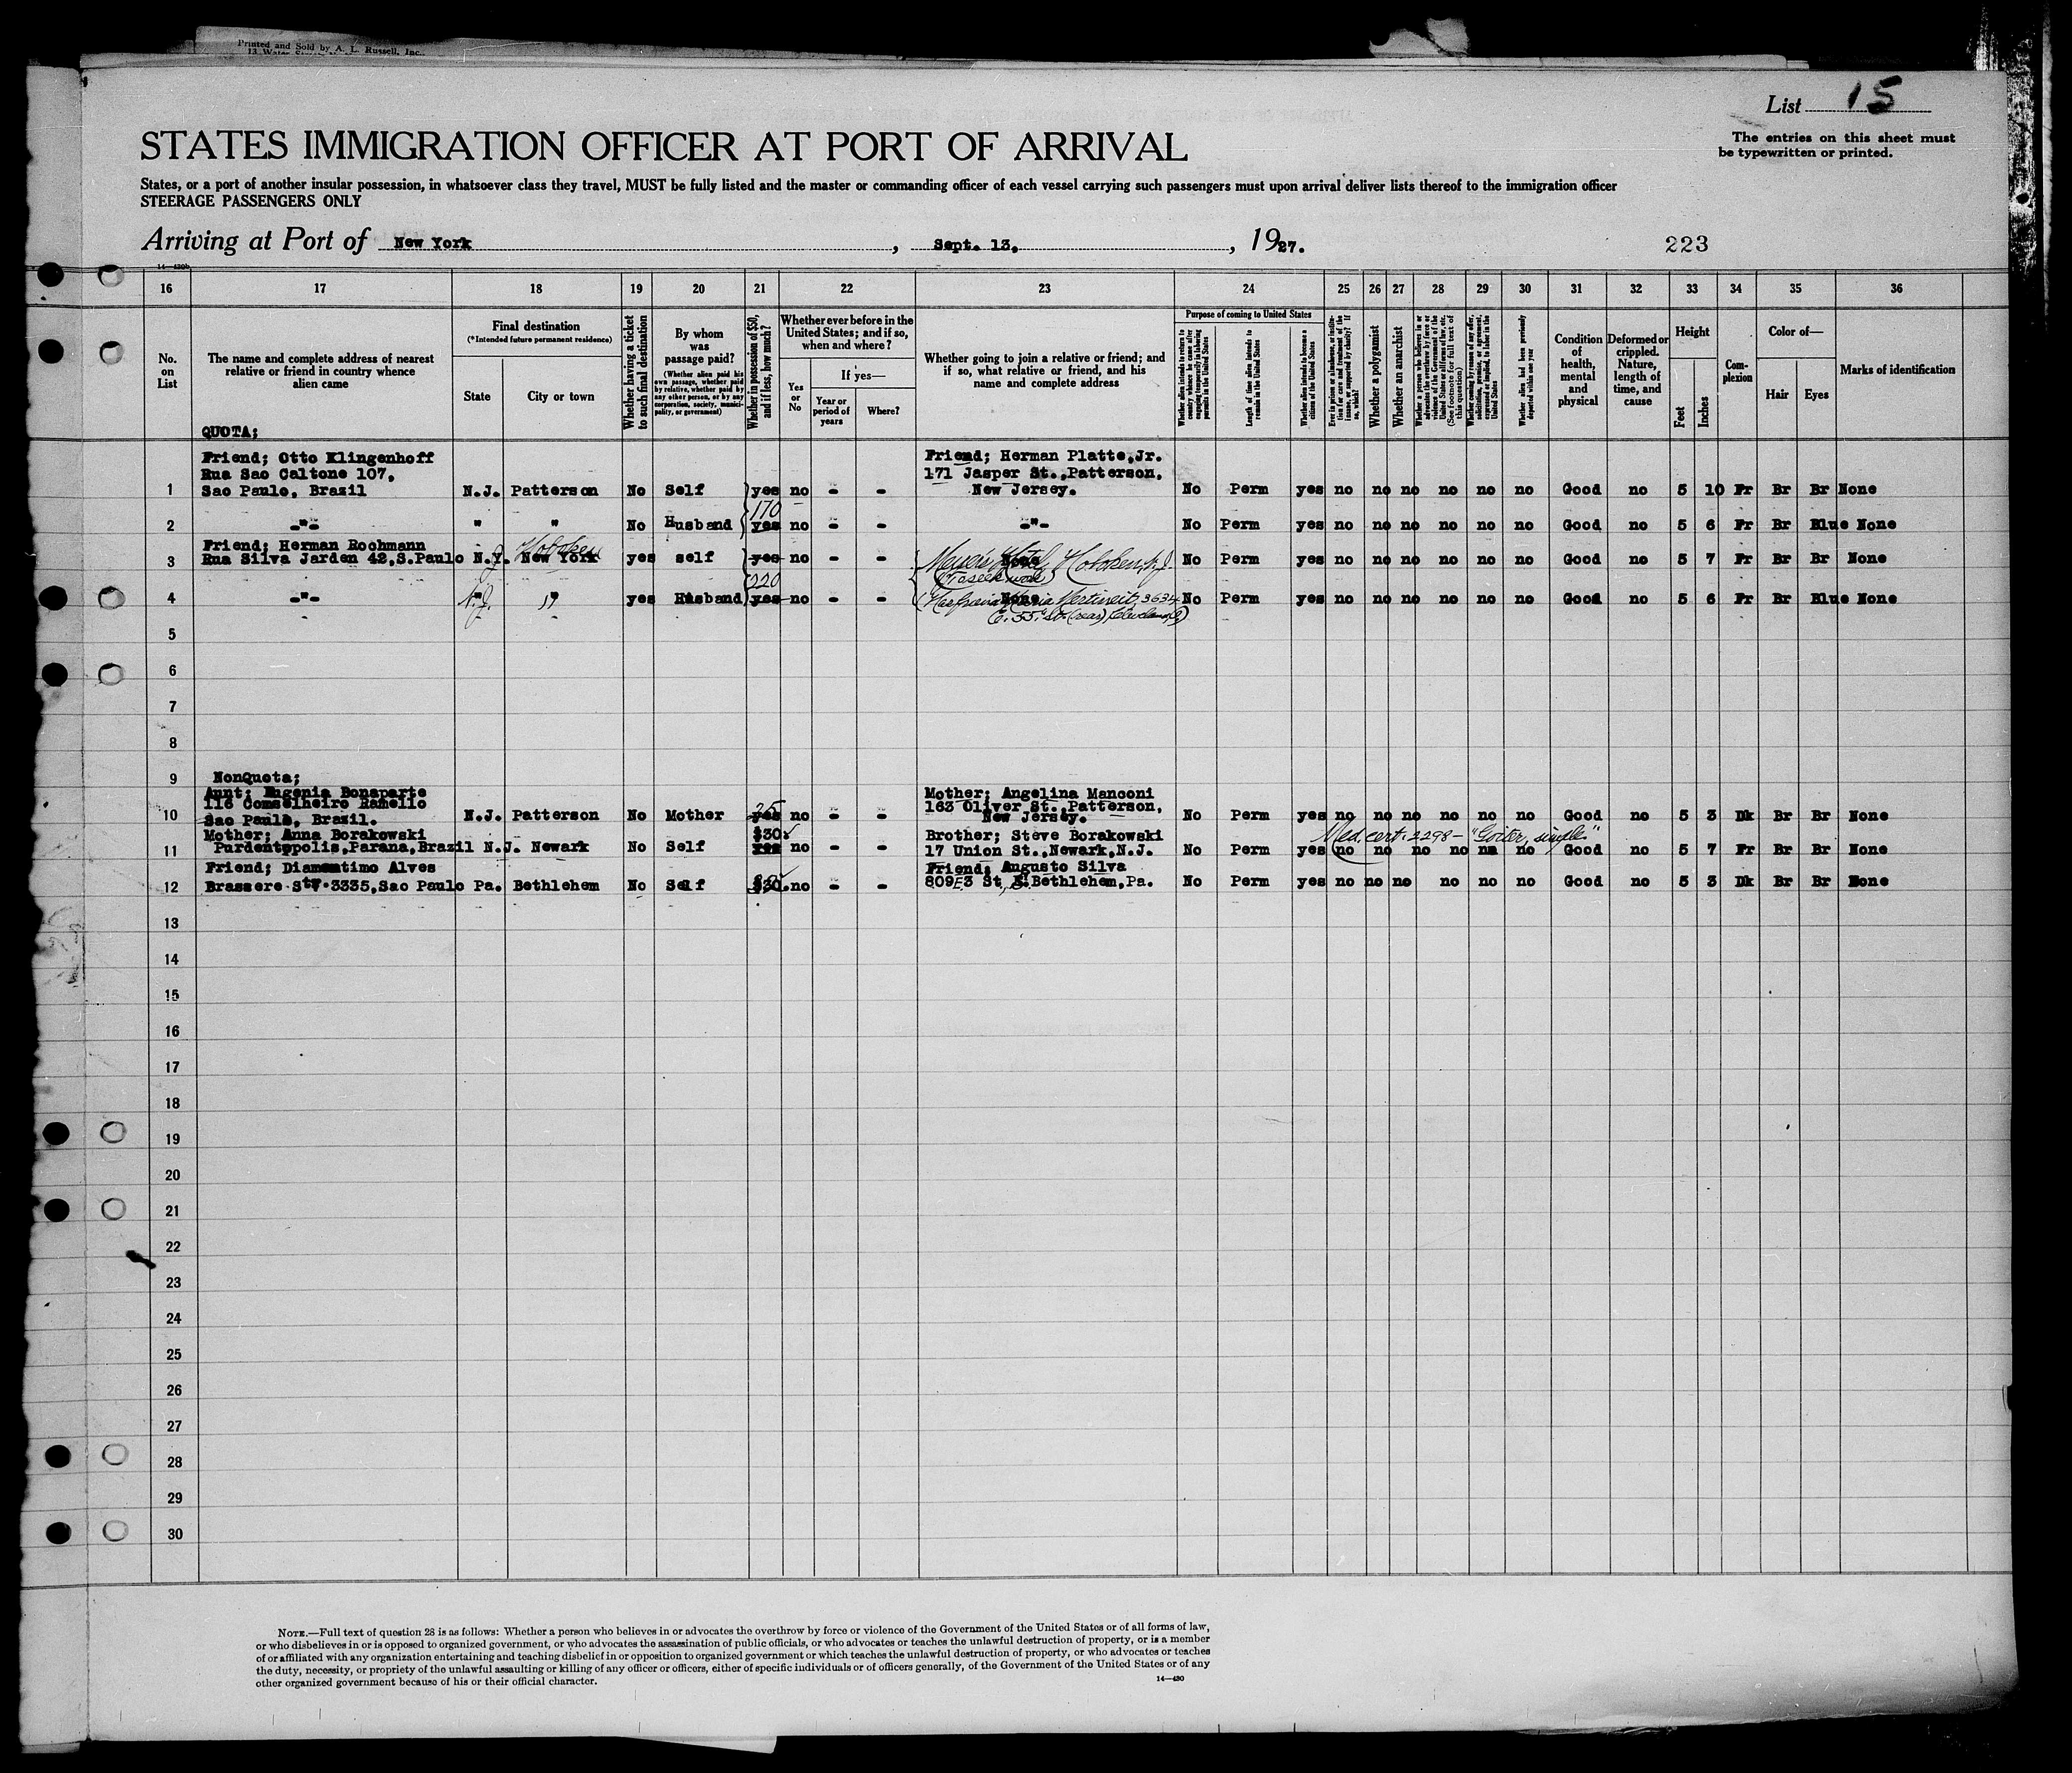 Printed and Sold by A. L. Russell, Inc.
List 15
The entries on this sheet must
be typewritten or printed.
STATES IMMIGRATION OFFICER AT PORT OF ARRIVAL
States, or a port of another insular possession, in whatsoever class they travel, MUST be fully listed and the master or commanding officer of each vessel carrying such passengers must upon arrival deliver lists thereof to the immigration officer
STEERAGE PASSENGERS ONLY
Arriving at Port of New York, Sept. 13, 1927.
223
16 17 18 19 20 21 22 23 24 25 26 27 28 29 30 31 32 33 34 35 36
No. on List
The name and complete address of nearest relative or friend in country whence alien came
Final destination
(*Intended future permanent residence)
State
City or town
Whether having a ticket to such final destination
By whom was passage paid?
(Whether alien paid his own passage, whether paid by relative, whether paid by any other person, or by any corporation, society, municipality, or government)
Whether in possession of $50, and if less, how much?
Whether ever before in the United States; and if so, when and where?
Yes or No
If yes—
Year or period of years
Where?
Whether going to join a relative or friend; and if so, what relative or friend, and his name and complete address
Purpose of coming to United States
Whether alien intends to return to country whence he came after engaging temporarily in laboring pursuits in the United States
Length of time alien intends to remain in the United States
Whether alien intends to become a citizen of the United States
Ever in prison or almshouse, or institution for care and treatment of the insane, or supported by charity? If so, which?
Whether a polygamist
Whether an anarchist
Whether a person who believes in or advocates the overthrow by force or violence of the Government of the United States or all forms of law, etc. (See footnote for full text of this question)
Whether coming by reason of any offer, solicitation, promise, or agreement, expressed or implied, to labor in the United States
Whether alien had been previously deported within one year
Condition of health, mental and physical
Deformed or crippled. Nature, length of time, and cause
Height
Feet
Inches
Complexion
Color of—
Hair
Eyes
Marks of identification
QUOTA;
Friend; Otto Klingenhoff
Rua Sao Caltone 107,
Friend; Herman Platte,Jr.
171 Jasper St.,Patterson,
1 Sao Paulo, Brazil N.J. Patterson No Self yes no - - New Jersey. No Perm yes no no no no no no Good no 5 10 Fr Br Br None
170
2 -"- " " No Husband yes no - - -"- No Perm yes no no no no no no Good no 5 6 Fr Br Blue None
Friend; Herman Rochmann
Hoboken
3 Rua Silva Jarden 42,S.Paulo N.Y. New York yes self yes no - - Meyer's Hotel, Hoboken, N.J. No Perm yes no no no no no no Good no 5 7 Fr Br Br None
220
(To seek work)
4 -"- N.J. " yes Husband yes no - - None 3634 No Perm yes no no no no no no Good no 5 6 Fr Br Blue None
E. 55" St.
5
6
7
8
9 NonQuota;
Aunt; Eugenia Bonaparte
116 Comselheiro Ramello
Mother; Angelina Manconi
163 Oliver St.,Patterson,
25
10 Sao Paulo, Brazil. N.J. Patterson No Mother yes no - - New Jersey. No Perm yes no no no no no no Good no 5 3 Dk Br Br None
Mother; Anna Borakowski $30 Brother; Steve Borakowski Med. cert. 2298 — "Goiter, simple"
11 Purdentopolis,Parana,Brazil N.J. Newark No Self yes no - - 17 Union St.,Newark,N.J. No Perm yes no no no no no no Good no 5 7 Fr Br Br None
Friend; Diamantimo Alves
Friend; Augusto Silva
12 Brassere Str.3335,Sao Paulo Pa. Bethlehem No Self $30. no - - 809 E 3 St, S. Bethlehem,Pa. No Perm yes no no no no no no Good no 5 3 Dk Br Br None
13
14
15
16
17
18
19
20
21
22
23
24
25
26
27
28
29
30
NOTE.—Full text of question 28 is as follows: Whether a person who believes in or advocates the overthrow by force or violence of the Government of the United States or of all forms of law,
or who disbelieves in or is opposed to organized government, or who advocates the assassination of public officials, or who advocates or teaches the unlawful destruction of property, or is a member
of or affiliated with any organization entertaining and teaching disbelief in or opposition to organized government or which teaches the unlawful destruction of property, or who advocates or teaches
the duty, necessity, or propriety of the unlawful assaulting or killing of any officer or officers, either of specific individuals or of officers generally, of the Government of the United States or of any
other organized government because of his or their official character.
14—430